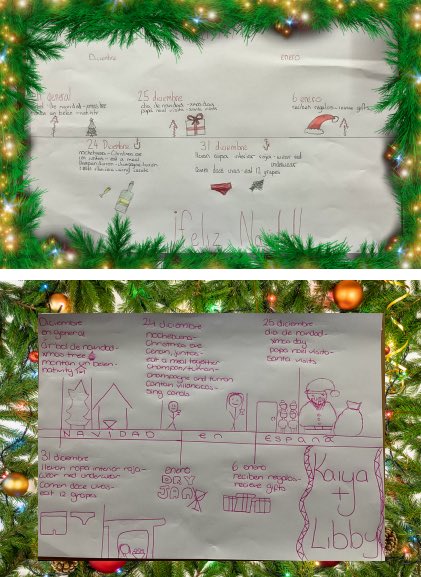 Diciembre
enero
general
25 diciembre
6 enero
día de navidad - xmas day
papa noel visita - santa visits
reciben regalos - recieve gifts
24 Diciembre
31 diciembre
nochebuena - Christmas eve
eat a meal
llevan ropa interior roja - wear red
underwear
Comen doce uvas - eat 12 grapes
¡Feliz
Diciembre
en general
árbol de navidad -
xmas tree
montan un belen -
nativity
24 diciembre
nochebuena -
Christmas eve
Comen juntos -
eat a meal together
champan/turron -
champagne and turron
cantan villancicos -
sing carols
25 diciembre
día de navidad -
xmas day
papa noel visits -
santa visits
NAVIDAD en ESPAÑA
31 diciembre
llevan ropa interior roja -
wear red underwear
Comen doce uvas -
eat 12 grapes
enero
DRY
JAN
6 enero
reciben regalos -
recieve gifts
Kaiya
+
Libby